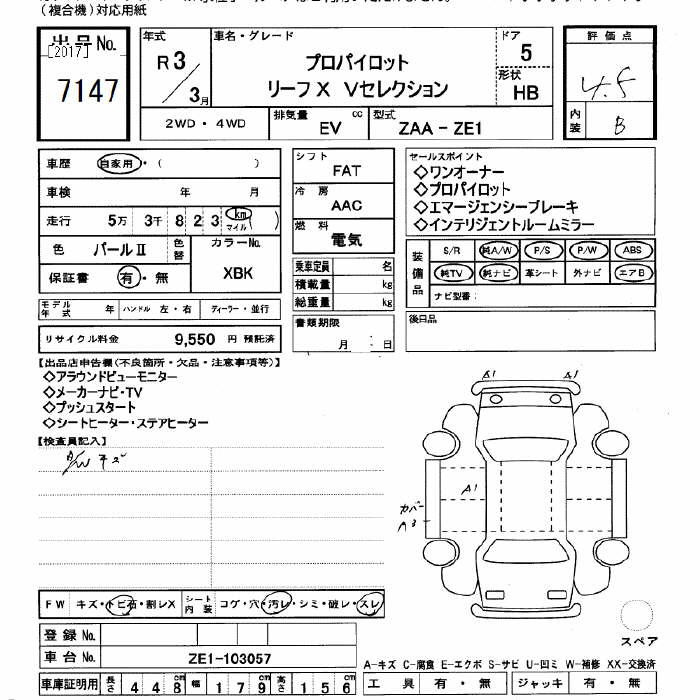 （複合機）対応用紙
出品No.
[2017]
7147
年式
R3/3月
車名・グレード
プロパイロット
リーフX Vセレクション
ドア
5
形状
HB
評価点
4.5
内装
B
2WD・4WD
排気量
EV
cc
型式
ZAA-ZE1
車歴 自家用・（ ）
車検 年 月
走行 5万 3千 8 2 3 km マイル ( )
色 パールⅡ 色替
カラーNo.
XBK
保証書 有・無
モデル年式 年 ハンドル 左・右 ディーラー・並行
リサイクル料金 9,550 円 預託済
シフト
FAT
冷房
AAC
燃料
電気
乗車定員 名
積載量 kg
総重量 kg
書類期限
月 : 日
セールスポイント
◇ワンオーナー
◇プロパイロット
◇エマージェンシーブレーキ
◇インテリジェントルームミラー
装備品
S/R 純A/W P/S P/W ABS
純TV 純ナビ 革シート 外ナビ エアB
ナビ型番：
後日品
【出品店申告欄（不良箇所・欠品・注意事項等）】
◇アラウンドビューモニター
◇メーカーナビ・TV
◇プッシュスタート
◇シートヒーター・ステアヒーター
【検査員記入】
A/W キズ
A1 A1
A1
カバー
A3
FW キズ・トビ石・割レX
シート内装 コゲ・穴・汚レ・シミ・破レ・スレ
スペア
登録No.
車台No. ZE1-103057
A-キズ C-腐食 E-エクボ S-サビ U-凹ミ W-補修 XX-交換済
車庫証明用 長さ 4 4 8 cm 幅 1 7 9 cm 高さ 1 5 6 cm
工具 有・無 ジャッキ 有・無